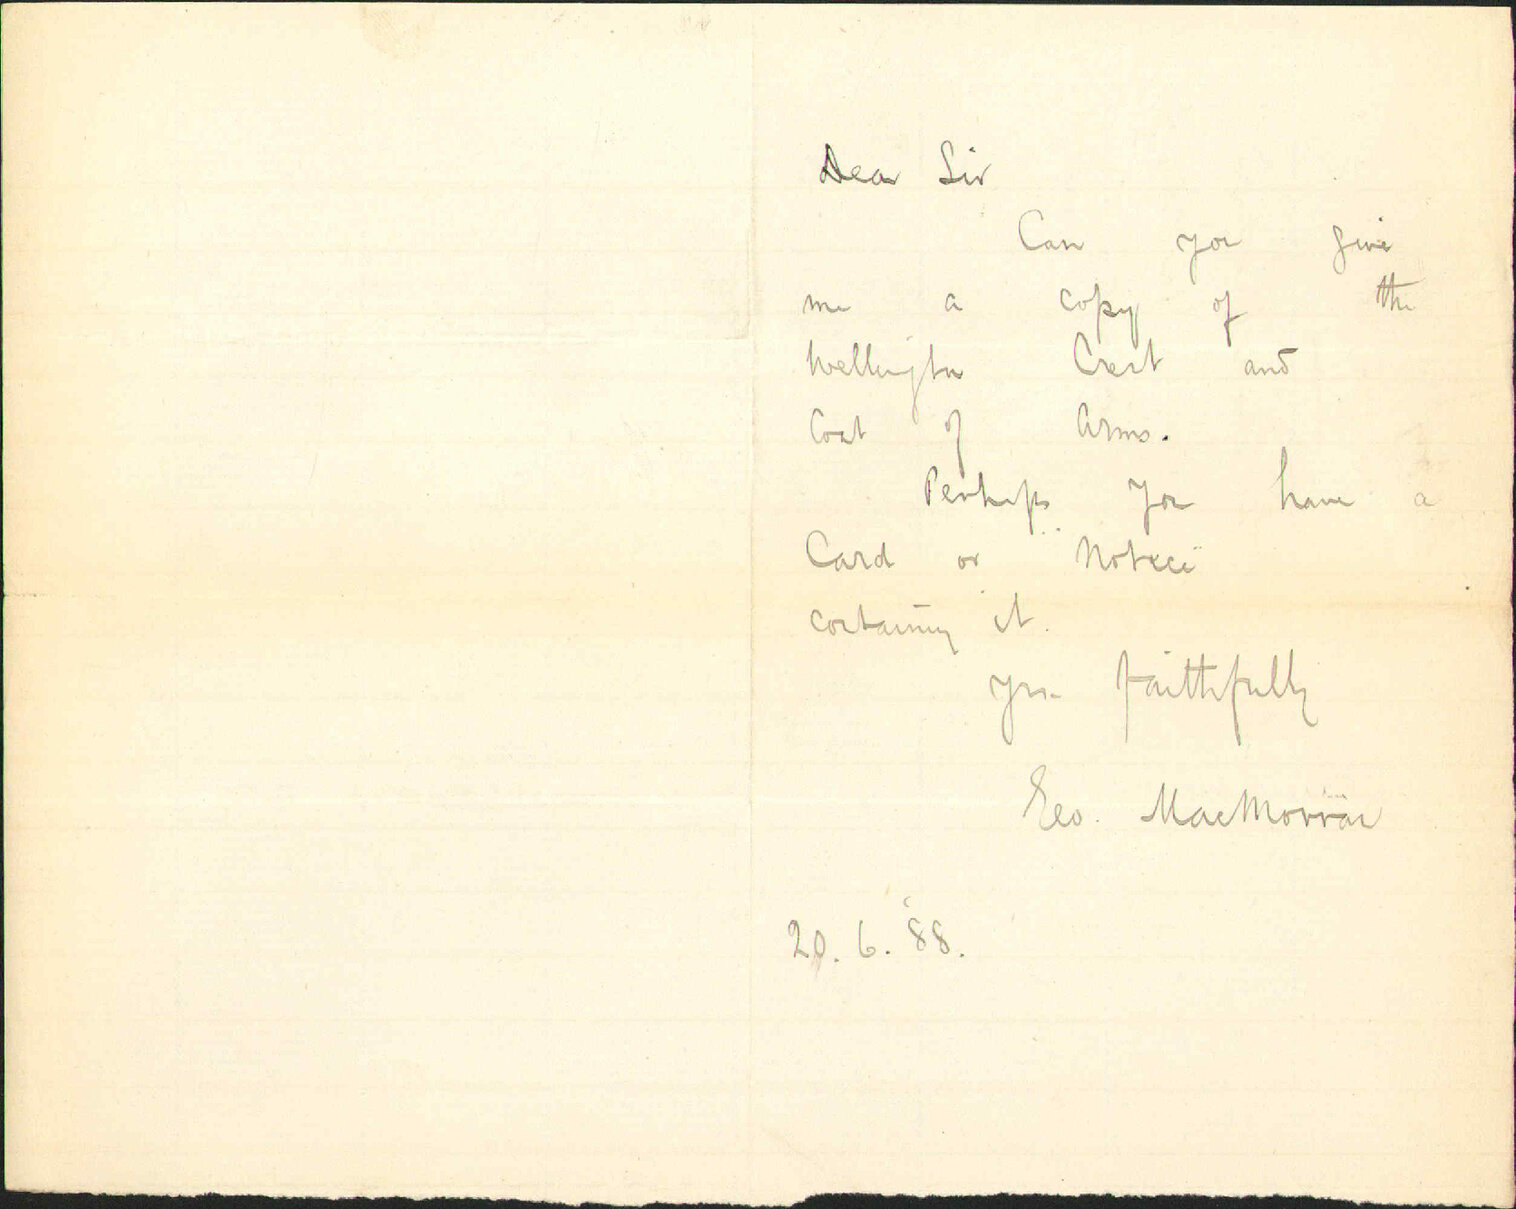 Dear Sir
Can you give
me a copy of the
Wellington Crest and
Coat of Arms.
Perhaps you have a
Card or Notice
containing it.
Yrs. faithfully
Geo. MacMorran
20.6.'88.